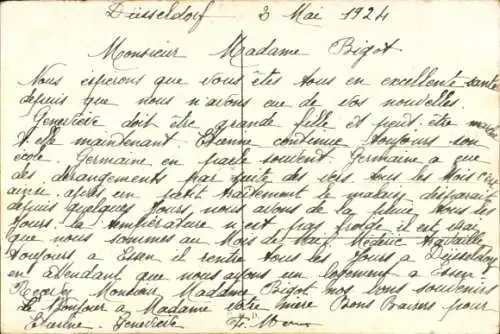 Düsseldorf 3 Mai 1924
Monsieur Madame Bigot
Nous esperons que vous êtes tous en excellente santé
depuis que nous n'avons eue de vos nouvelles.
Geneviève doit être grande fille et peut être
t elle maintenant. Etienne continue toujours son
école. Germaine en parle souvent. Germaine a eue
des derangements par suite des vers tous les mois
ainsi après un petit traitement le malaise disparait
depuis quelques jours nous avons de la pluie tous les
jours. la température n'est pas froide il est vrai
que nous sommes au Mois de Mai. Médéric travaille
toujours a Essen il rentre tous les jours a Düsseldorf
en attendant que nous ayons un logement a Essen
Recevez Monsieur Madame Bigot nos bons souvenirs
le bonjour a Madame votre mère Bons Baisers pour
Etienne Geneviève